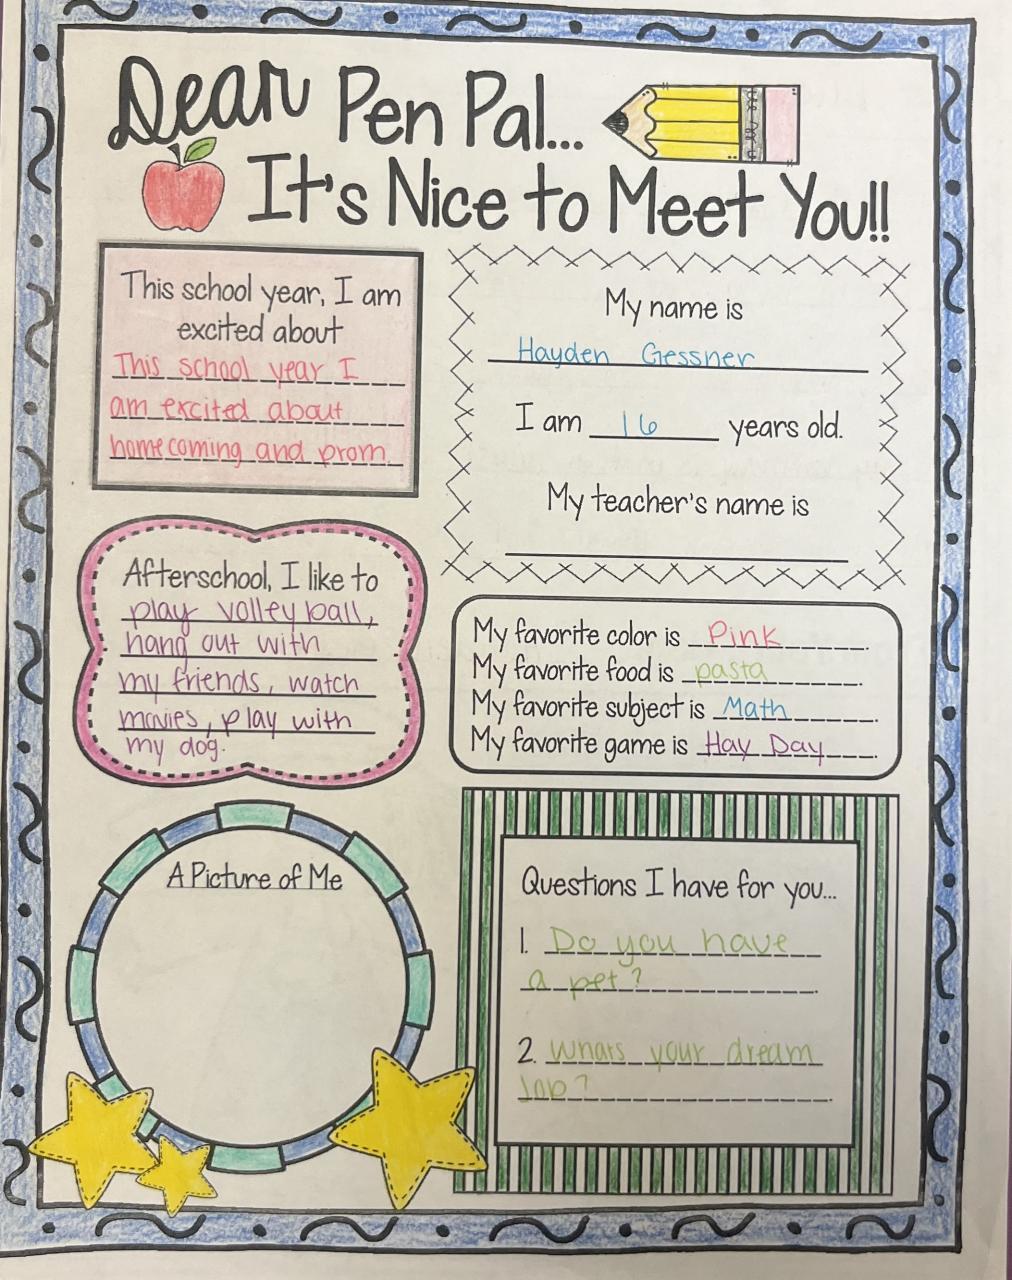 Dear Pen Pal...
It's Nice to Meet You!!
This school year, I am
excited about
This school year I
am excited about
homecoming and prom.
My name is
Hayden Gessner
I am 16 years old.
My teacher's name is
Afterschool, I like to
play volleyball,
hang out with
my friends, watch
movies, play with
my dog.
My favorite color is Pink.
My favorite food is pasta.
My favorite subject is Math.
My favorite game is Hay Day.
A Picture of Me
Questions I have for you...
1. Do you have
a pet?
2. Whats your dream
Job?